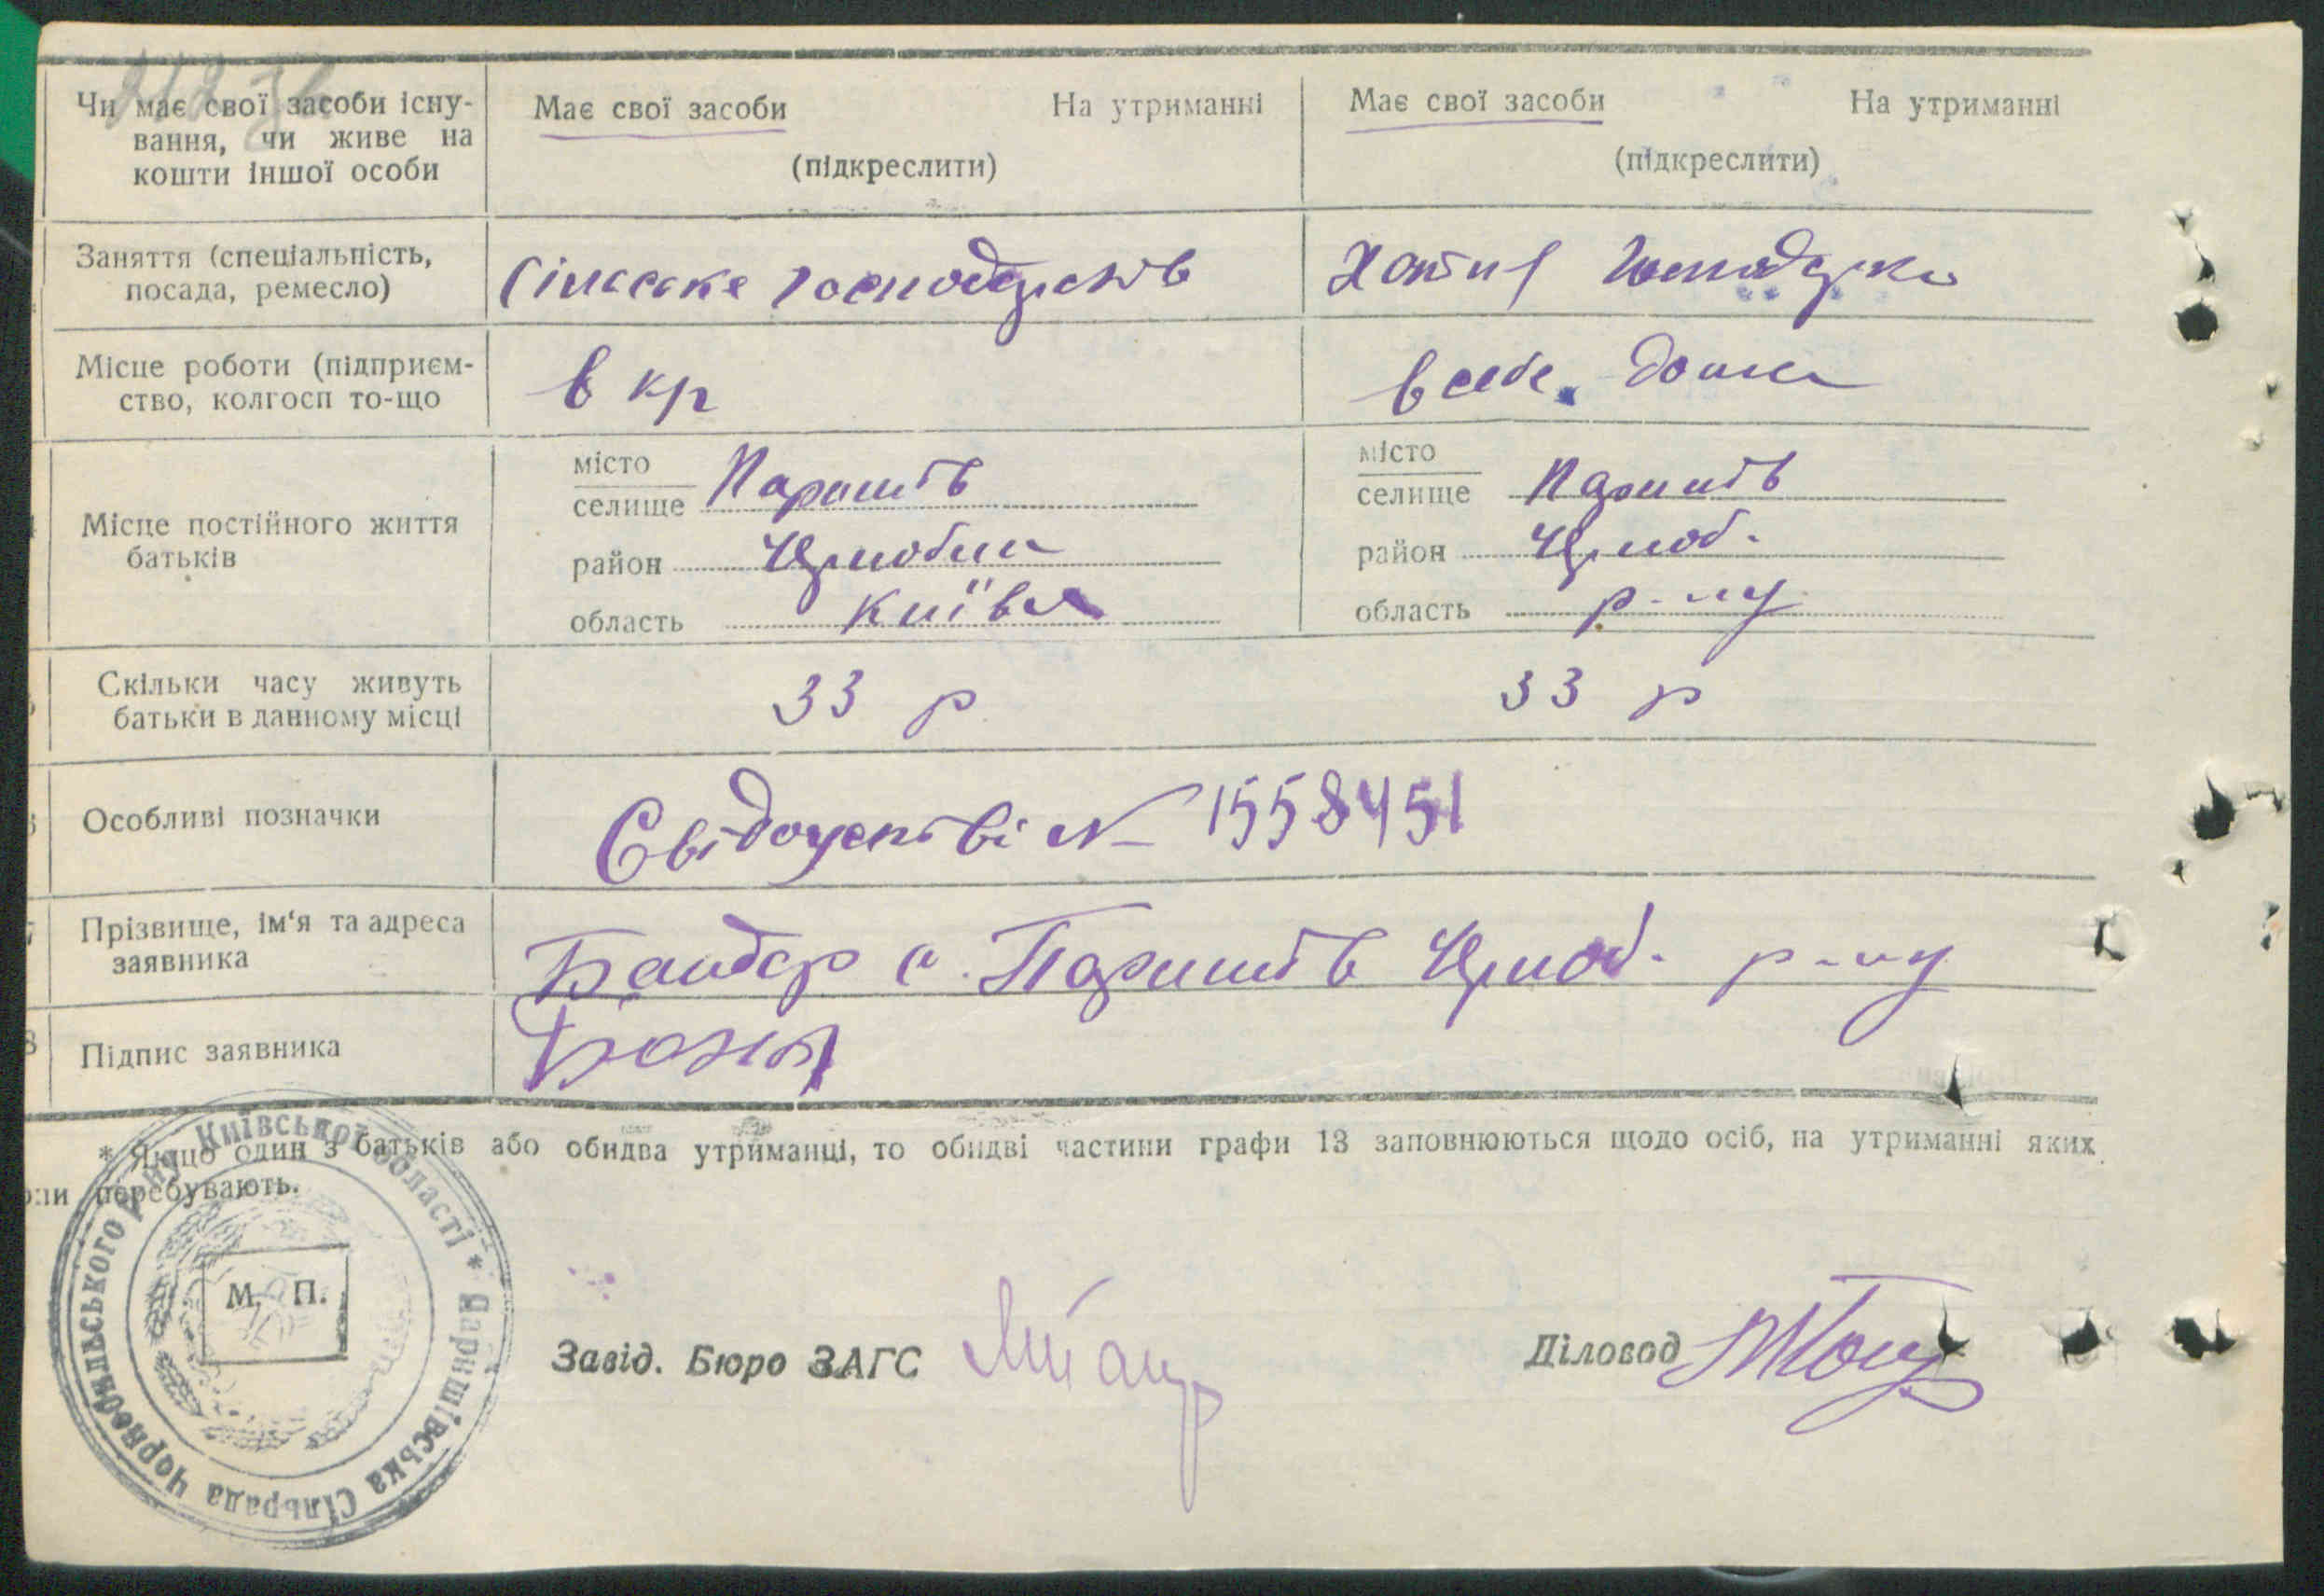 Чи має свої засоби існу-
вання, чи живе на
кошти іншої особи
Має свої засоби На утриманні
(підкреслити)
Має свої засоби На утриманні
(підкреслити)
Заняття (спеціальність,
посада, ремесло)
Сільське господарств
Хатня господарка
Місце роботи (підприєм-
ство, колгосп то-що
в кр
в себе дома
Місце постійного життя
батьків
місто
селище Паришів
район Чорнобил
область Київс
місто
селище Паришів
район Чорноб.
область р-ну
Скільки часу живуть
батьки в данному місці
33 р
33 р
Особливі позначки
Свідоцтві № 1558451
Прізвище, ім‘я та адреса
заявника
с. Паришів Чорноб. р-ну
Підпис заявника
* Якщо один з батьків або обидва утриманці, то обидві частини графи 13 заповнюються щодо осіб, на утриманні яких
перебувають.
М. П.
Паришівська Сільрада Чорнобильського р-ну Київської області *
Завід. Бюро ЗАГС
Діловод